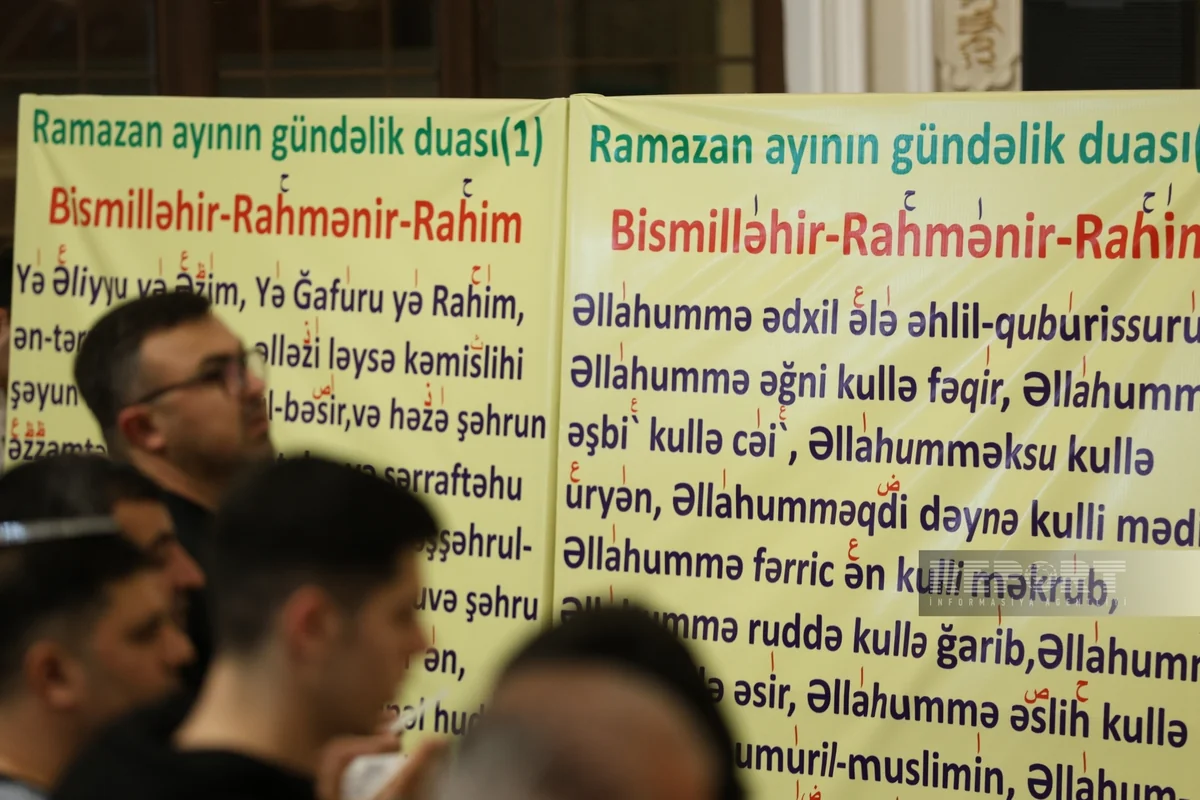 Ramazan ayının gündəlik duası(1)
Bismilləhir-Rahmənir-Rahim
Yə Əliyyu yə Əzim, Yə Ğafuru yə Rahim,
əlləzi ləysə kəmislihi
şəyun l-bəsir,və həzə şəhrun
əzzamtə
sərraftəhu
şşəhrul-
uvə şəhru
ən,
Ramazan ayının gündəlik duası(
Bismilləhir-Rahmənir-Rahim
Əllahummə ədxil ələ əhlil-quburissuru
Əllahummə əğni kullə fəqir, Əllahumm
əşbi` kullə cəi`, Əllahumməksu kullə
uryən, Əllahumməqdi dəynə kulli mədi
Əllahummə fərric ən kulli məkrub,
mmə ruddə kullə ğarib,Əllahumm
əsir, Əllahummə əslih kullə
umuril-muslimin, Əllahum
REPORT
INFORMASIYA AGENTLIYI